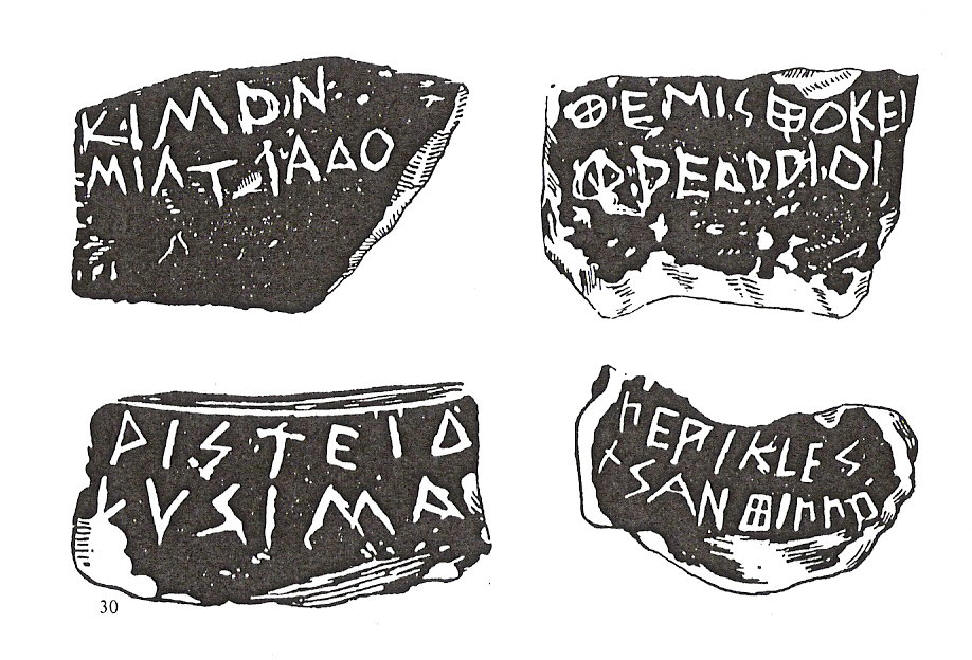 ΚΙΜΟΝ
ΜΙΛΤΙΑΔΟ
ΘΕΜΙΣΘΟΚΕΙ
ΦΡΕΑΡΡΙΟΙ
ΡΙΣΤΕΙΔ
ΛΥΣΙΜΑ
ΠΕΡΙΚΛΕΣ
ΧΣΑΝΘΙΠΠΟ
30